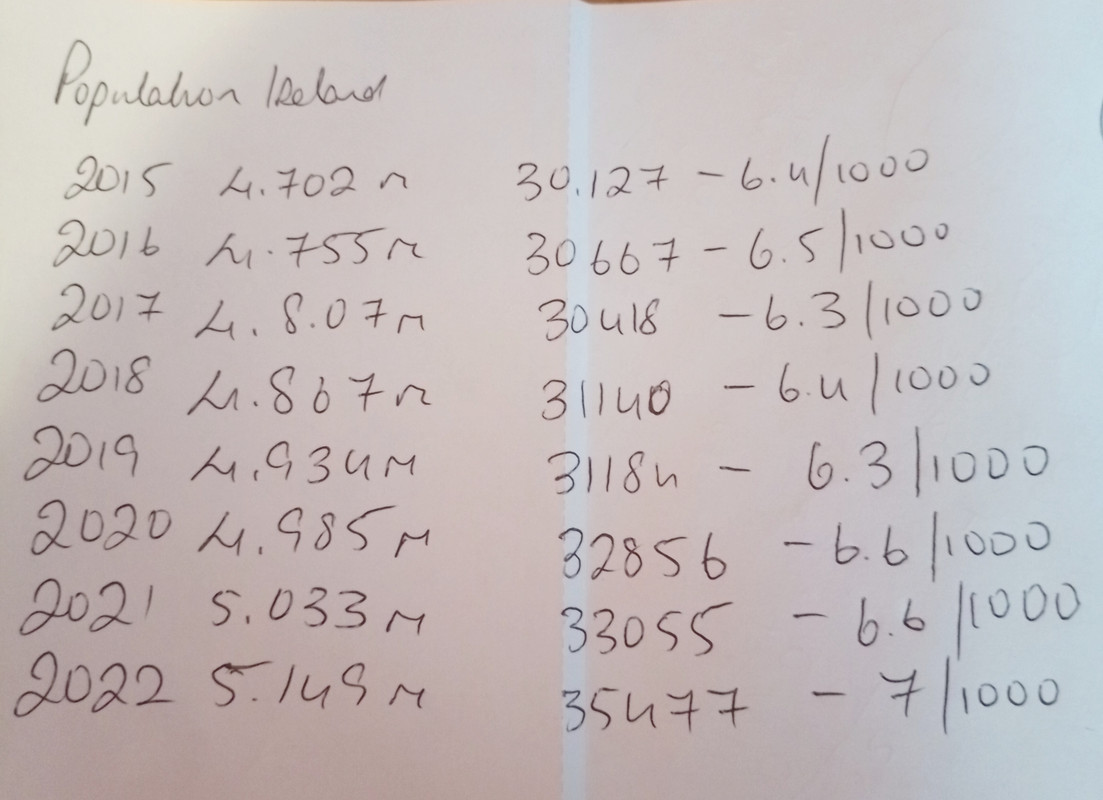 Population Ireland
2015 4.702 m 30.127 - 6.4/1000
2016 4.755m 30667 - 6.5/1000
2017 4.8.07m 30418 - 6.3/1000
2018 4.867m 31140 - 6.4/1000
2019 4.934m 31184 - 6.3/1000
2020 4.985m 32856 - 6.6/1000
2021 5.033m 33055 - 6.6/1000
2022 5.149m 35477 - 7/1000